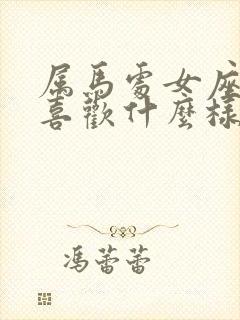 属馬處女座
喜歡什麼樣
馮蕾蕾